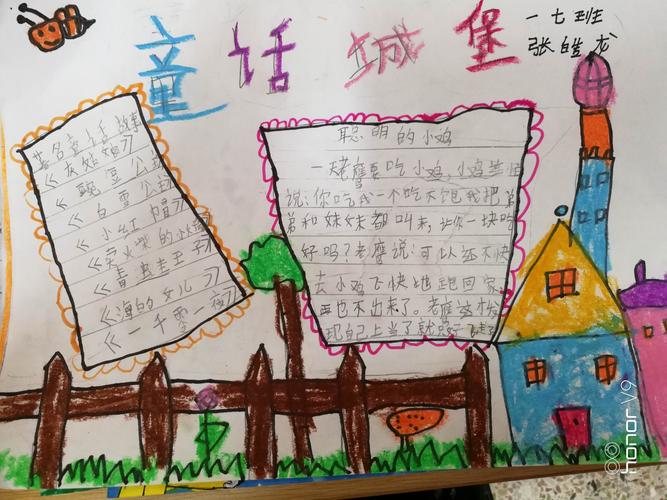 童话城堡
一七班
张皑龙
著名童话故事
《灰姑娘》
《豌豆公主
《白雪公主
《小红帽》
《卖火柴的小女孩
《青蛙王子》
《海的女儿》
《一千零一夜》
聪明的小鸡
一老鹰要吃小鸡,小鸡
说:你吃我一个吃不饱我把弟
弟和妹妹都叫来,让你一块吃
好吗?老鹰说:可以还不快
去小鸡飞快地跑回家
再也不出来了。老鹰这才发
现自己上当了
honor V9